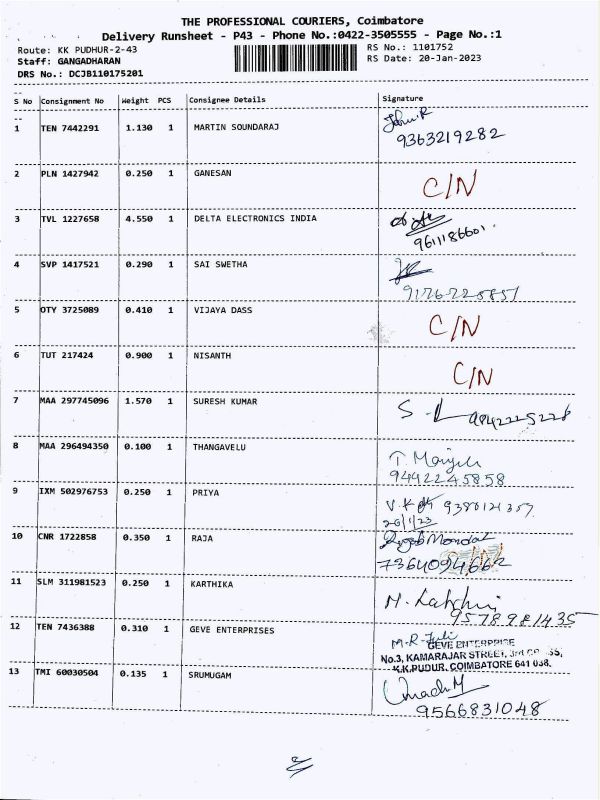 THE PROFESSIONAL COURIERS, Coimbatore
Delivery Runsheet - P43 - Phone No.:0422-3505555 - Page No.:1
Route: KK PUDHUR-2-43 RS No.: 1101752
Staff: GANGADHARAN RS Date: 20-Jan-2023
DRS No.: DCJB110175201
S No Consignment No Weight PCS Consignee Details Signature
1 TEN 7442291 1.130 1 MARTIN SOUNDARAJ
9363219282
2 PLN 1427942 0.250 1 GANESAN C/N
3 TVL 1227658 4.550 1 DELTA ELECTRONICS INDIA
9611186601
4 SVP 1417521 0.290 1 SAI SWETHA
5 OTY 3725089 0.410 1 VIJAYA DASS C/N
6 TUT 217424 0.900 1 NISANTH C/N
7 MAA 297745096 1.570 1 SURESH KUMAR
8 MAA 296494350 0.100 1 THANGAVELU
9442245858
9 IXM 502976753 0.250 1 PRIYA
10 CNR 1722858 0.350 1 RAJA
7364094662
11 SLM 311981523 0.250 1 KARTHIKA
9578981435
12 TEN 7436388 0.310 1 GEVE ENTERPRISES
GEVE ENTERPRISE
No.3, KAMARAJAR STREET,
K.K.PUDUR, COIMBATORE 641 038.
13 TMI 60030504 0.135 1 SRUMUGAM
9566831048